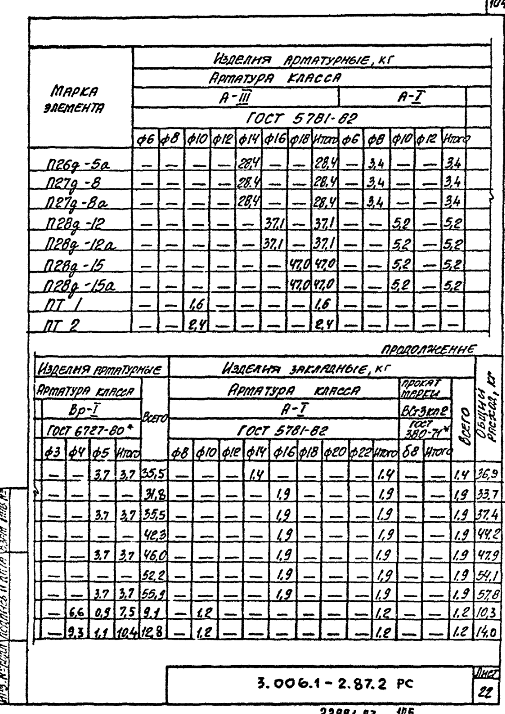 104
Изделия арматурные, кг
Марка элемента
Арматура класса
А-III А-I
ГОСТ 5781-82
ф6 ф8 ф10 ф12 ф14 ф16 ф18 Итого ф6 ф8 ф10 ф12 Итого
П26д-5а — — — — 28,4 — — 28,4 — 3,4 — — 3,4
П27д-8 — — — — 28,4 — — 28,4 — 3,4 — — 3,4
П27д-8а — — — — 28,4 — — 28,4 — 3,4 — — 3,4
П28д-12 — — — — — 37,1 — 37,1 — — 5,2 — 5,2
П28д-12а — — — — — 37,1 — 37,1 — — 5,2 — 5,2
П28д-15 — — — — — — 47,0 47,0 — — 5,2 — 5,2
П28д-15а — — — — — — 47,0 47,0 — — 5,2 — 5,2
ПТ 1 — — 1,6 — — — — 1,6 — — — — —
ПТ 2 — — 2,4 — — — — 2,4 — — — — —
продолжение
Изделия арматурные Изделия закладные, кг Общий расход, кг
Арматура класса Всего Арматура класса Прокат марки Всего
Вр-I А-I ВСт3кп2
ГОСТ 6727-80* ГОСТ 5781-82 ГОСТ 380-71*
ф3 ф4 ф5 Итого ф8 ф10 ф12 ф14 ф16 ф18 ф20 ф22 Итого δ8 Итого
— — 3,7 3,7 35,5 — — — 1,4 — — — — 1,4 — — 1,4 36,9
— — — — 31,8 — — — — 1,9 — — — 1,9 — — 1,9 33,7
— — 3,7 3,7 35,5 — — — — 1,9 — — — 1,9 — — 1,9 37,4
— — — — 42,3 — — — — 1,9 — — — 1,9 — — 1,9 44,2
— — 3,7 3,7 46,0 — — — — 1,9 — — — 1,9 — — 1,9 47,9
— — — — 52,2 — — — — 1,9 — — — 1,9 — — 1,9 54,1
— — 3,7 3,7 55,9 — — — — 1,9 — — — 1,9 — — 1,9 57,8
— 6,6 0,9 7,5 9,1 — 1,2 — — — — — — 1,2 — — 1,2 10,3
— 9,3 1,1 10,4 12,8 — 1,2 — — — — — — 1,2 — — 1,2 14,0
3.006.1-2.87.2 РС
Лист
22